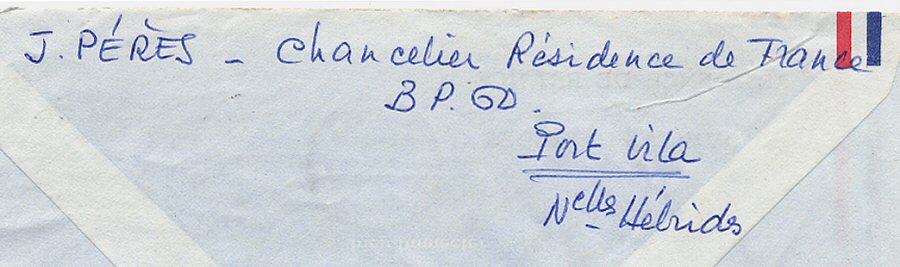 J. PÉRÈS - Chancelier Résidence de France
B P. 60.
Port Vila
Nelles Hébrides